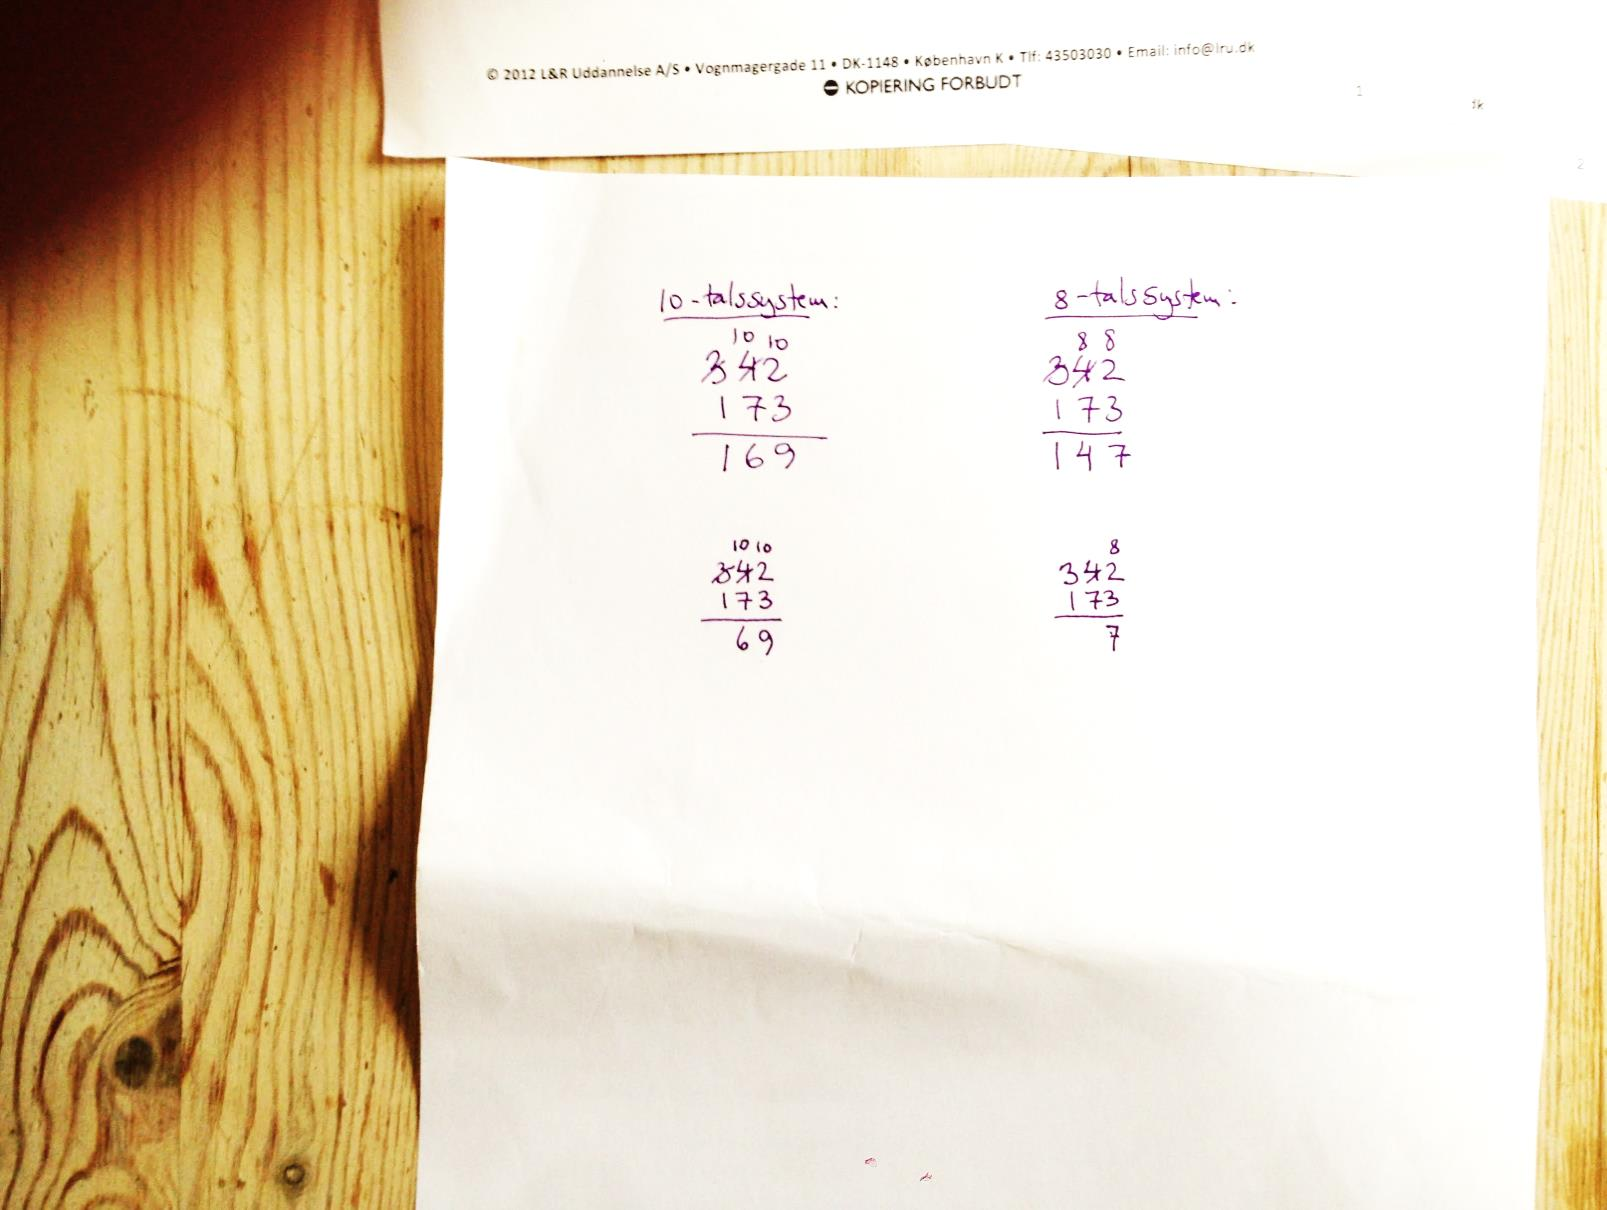 © 2012 L&R Uddannelse A/S • Vognmagergade 11 • DK-1148 • København K • Tlf: 43503030 • Email: info@lru.dk
KOPIERING FORBUDT
1
2
10-talssystem:
10 10
342
173
169
10 10
342
173
69
8-talssystem:
8 8
342
173
147
8
342
173
7